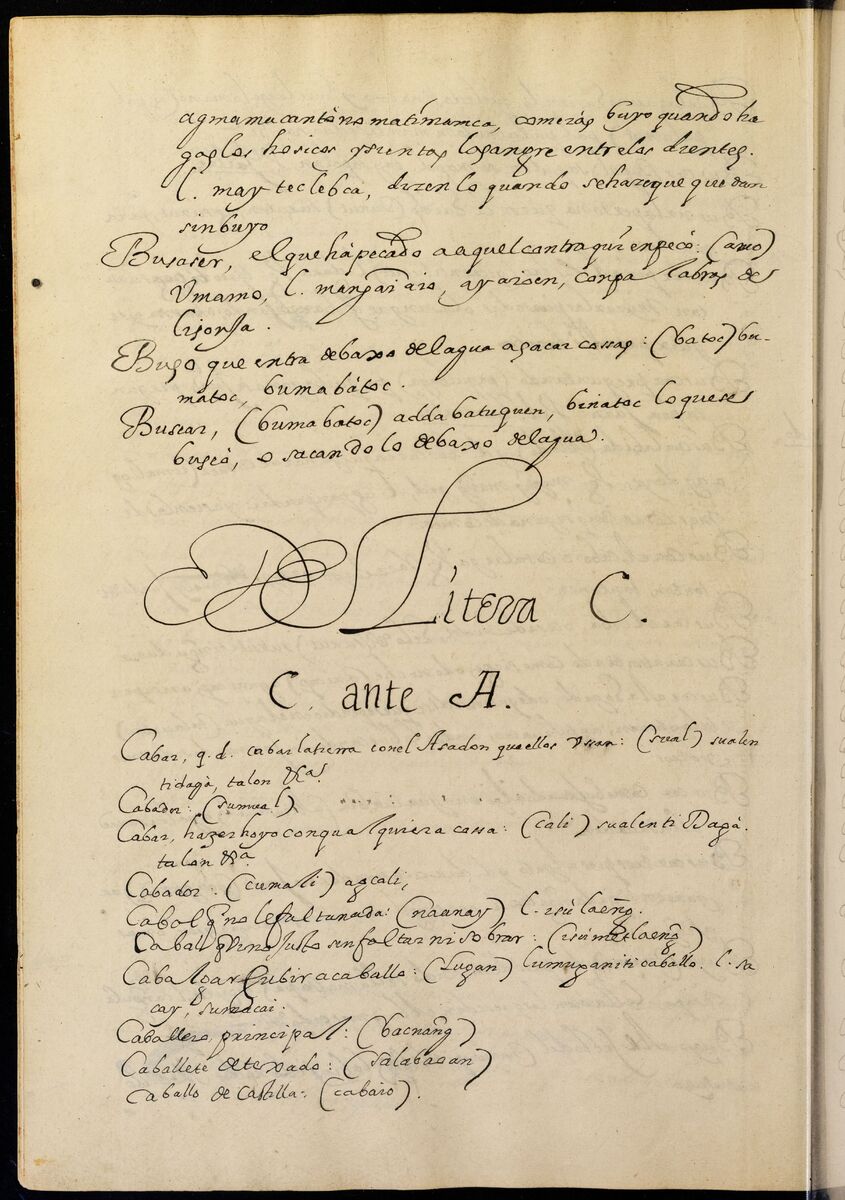 agmamacantôno matimamca, comeràs buyo quando ha
gas los hosicos y sientas lasangre entrelos dientes.
l. may teclebca, dizenlo quando sehazeque que dan
sinbuyo
Busaser, elque hàpecado a aquel contra quī enpecò: (aio)
Vmamo, l. mangaiaio, ayaioen, conpalabras de
lisonja.
Buso que entra debaxo delagua asacar cossas: (batoc) bu-
màtoc, bumabàtoc.
Buscar, (bumabatoc) addabatuquen, binatoc loquese
buscò, o sacandolo debaxo delagua.
Litera C.
C. ante A.
Cabar, q. d. cabar latierra conel Asadon queellos vssan: (sual) sualen
tidagà, talon &ca.
Cabador: (sumual)
Cabar, hazer hoyo conqualquiera cassa: (cali) sualenti Dagà.
talon &a.
Cabador: (cumali) agcali,
Cabal q̄ no lefaltanada: (naanay) l. isù laeng̃.
Cabal q̄ vino justo sinfaltar ni sobrar: (isùmetlaeng̃)
Cabalgar subir acaballo: (Lugan) lumuganiti caballo. l. sa
cay, sumacai.
Caballero, principal: (bacnang̃)
Caballete detexado: (salabasan)
Caballo de Castilla: (cabaio).